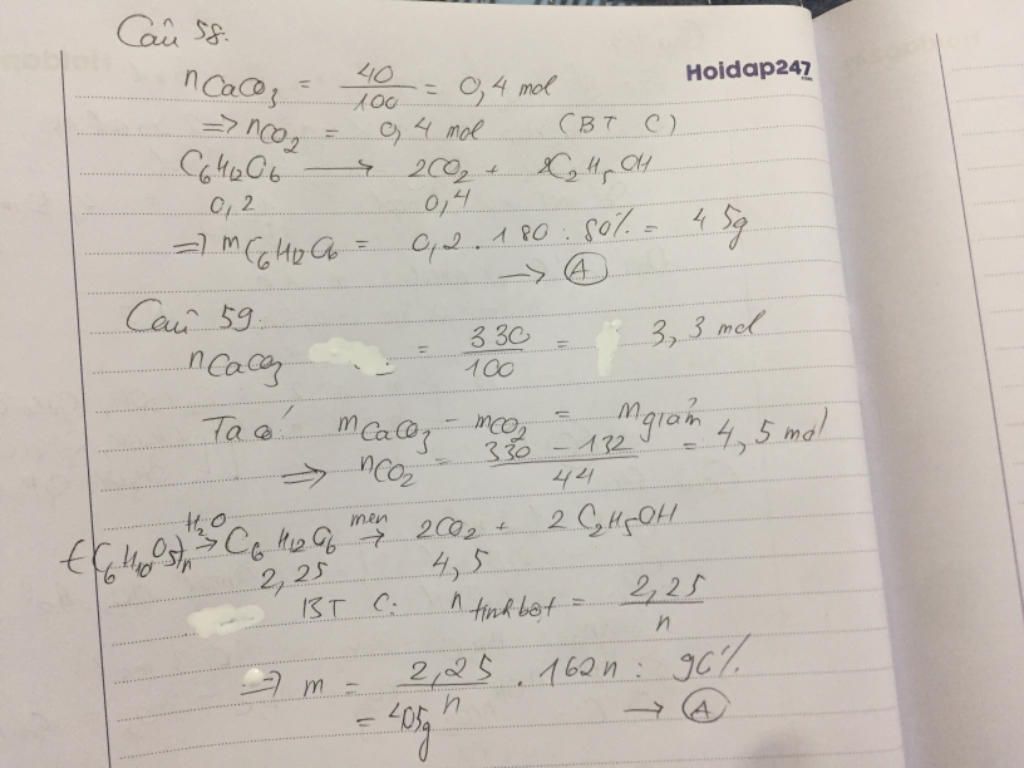 Câu 58.
Hoidap247.com
nCaCO3 = 40/100 = 0,4 mol
=> nCO2 = 0,4 mol (BT C)
C6H12O6 → 2CO2 + 2C2H5OH
0,2 0,4
=> mC6H12O6 = 0,2 . 180 : 80% = 45g
→ A
Câu 59.
nCaCO3 = 330/100 = 3,3 mol
Ta có: mCaCO3 - mCO2 = mgiảm
=> nCO2 = 330 - 132/44 = 4,5 mol
(C6H10O5)n H2O→ C6H12O6 men→ 2CO2 + 2C2H5OH
2,25 4,5
BT C: n tinh bột = 2,25/n
=> m = 2,25/n . 162n : 90%
= 405g → A